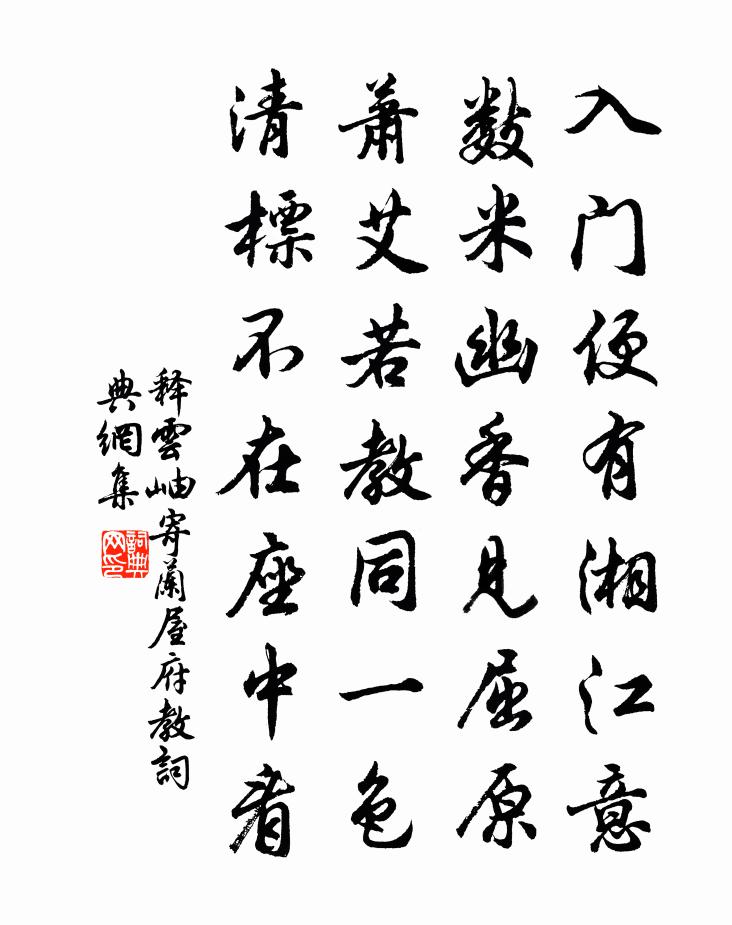 入门便有湘江意
数米幽香见屈原
萧艾若教同一色
清標不在座中看
释雲岫寄蘭屋府教詞
典網集
詞典网印